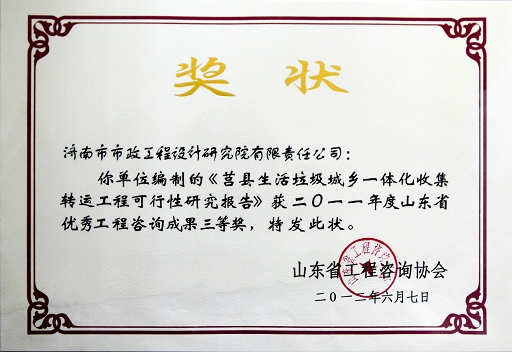 奖状
济南市市政工程设计研究院有限责任公司：
你单位编制的《莒县生活垃圾城乡一体化收集
转运工程可行性研究报告》获二〇一一年度山东省
优秀工程咨询成果三等奖，特发此状。
山东省工程咨询协会
二〇一二年六月七日